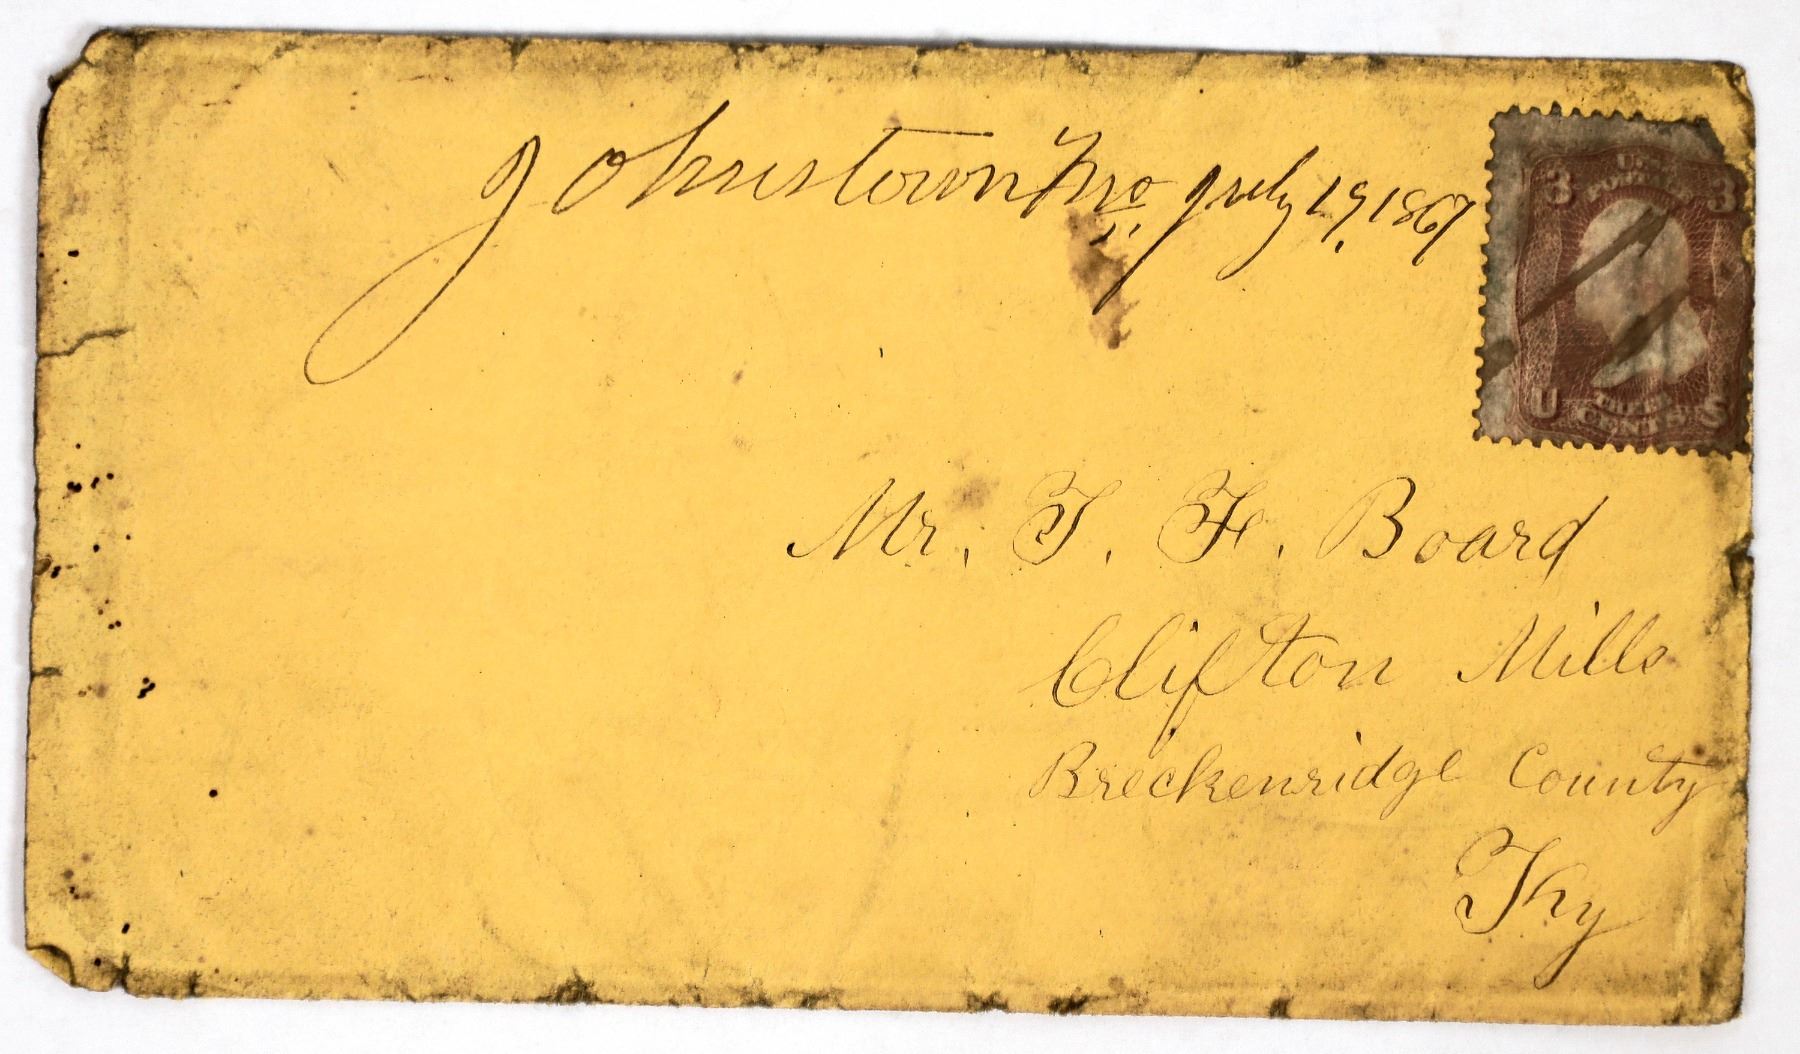 Johnstown Mo July 19, 1867
3 U.S. 3
POSTAGE
Mr. T. F. Board
U THREE S
CENTS
Clifton Mills
Breckenridge County
Ky